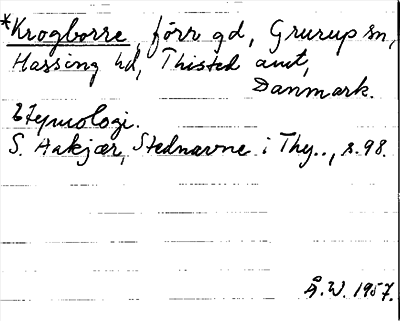 *Krogborre, förr gd, Grurup sn,
Hassing hd, Thisted amt,
Danmark.
Etymologi.
S. Aakjær, Stednavne i Thy.., s. 98.
Å.W. 1957.